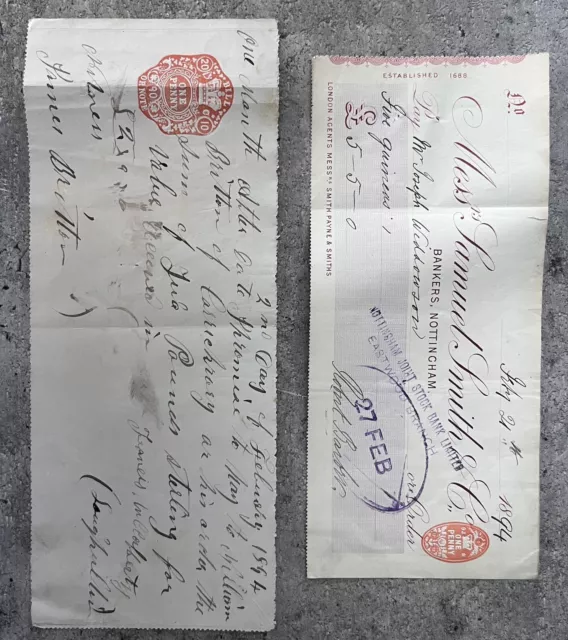 2nd Day of February 1894
One Month after date I promise to pay to William
Britton of Carrickrory or his order the
Sum of Two Pounds sterling for
Value Received in
Witness
James Britton
BILL OR NOTE
ONE PENNY
ESTABLISHED 1688
No
Feby 21st 1894
Messrs Samuel Smith & Co.
BANKERS, NOTTINGHAM
Pay Mr Joseph Widdowson
or Order
Five guineas
£5-5-0
LONDON AGENTS MESSRS SMITH PAYNE & SMITHS
NOTTINGHAM JOINT STOCK BANK LIMITED
EASTWOOD BRANCH
27 FEB
ONE PENNY